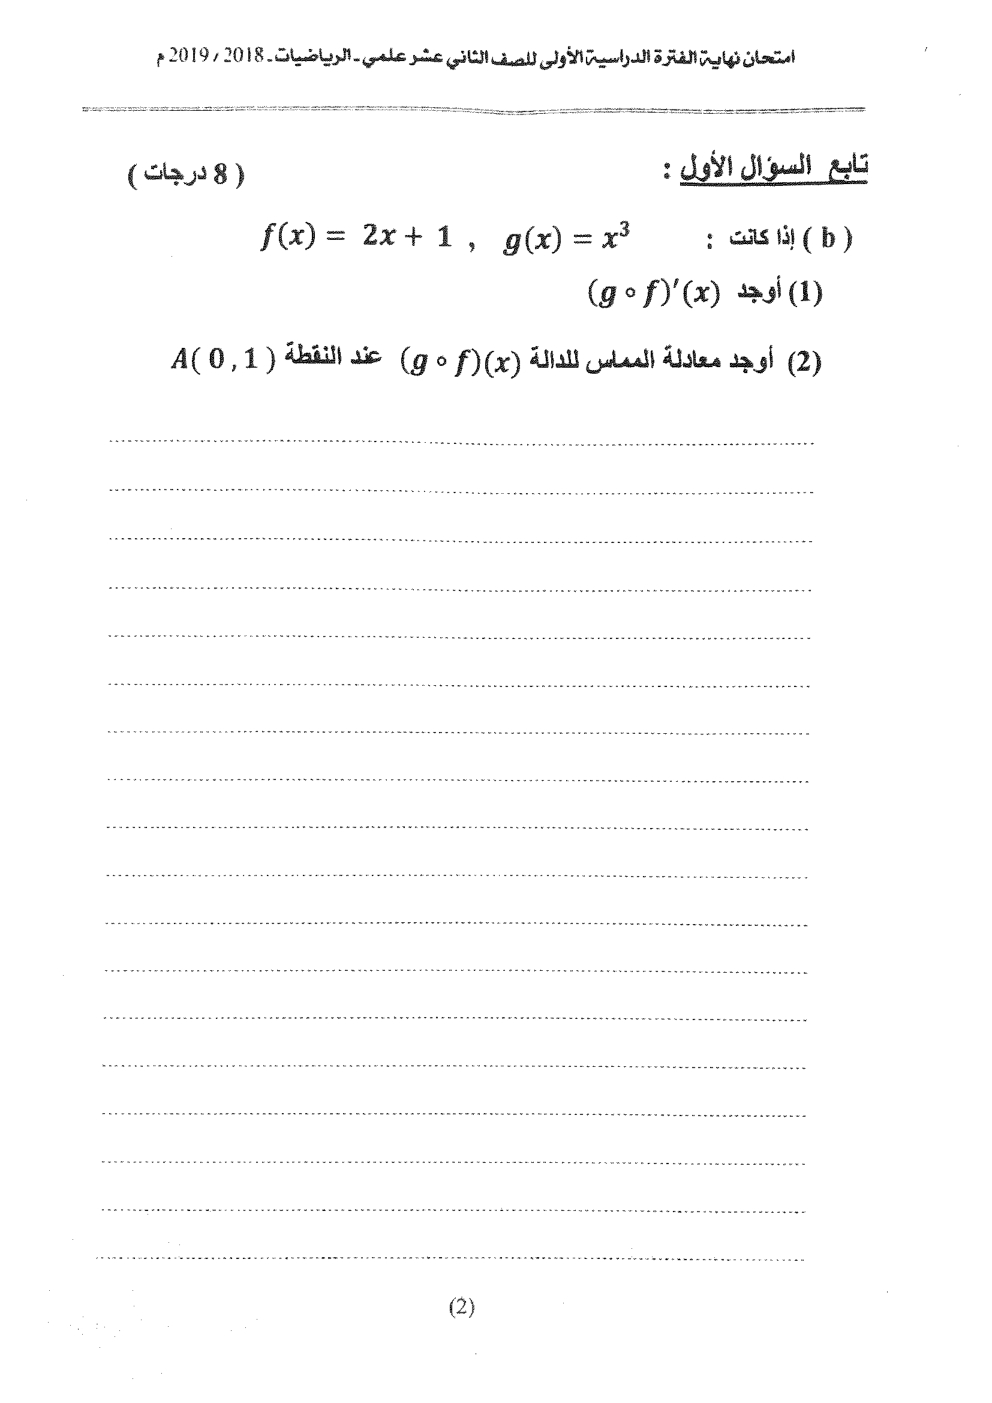 امتحان نهاية الفترة الدراسية الأولى للصف الثاني عشر علمي - الرياضيات - 2018 / 2019 م
تابع السؤال الأول : ( 8 درجات )
( b ) إذا كانت : f(x) = 2x + 1 , g(x) = x³
(1) أوجد (g ∘ f)′(x)
(2) أوجد معادلة المماس للدالة (g ∘ f)(x) عند النقطة A( 0 , 1 )
(2)